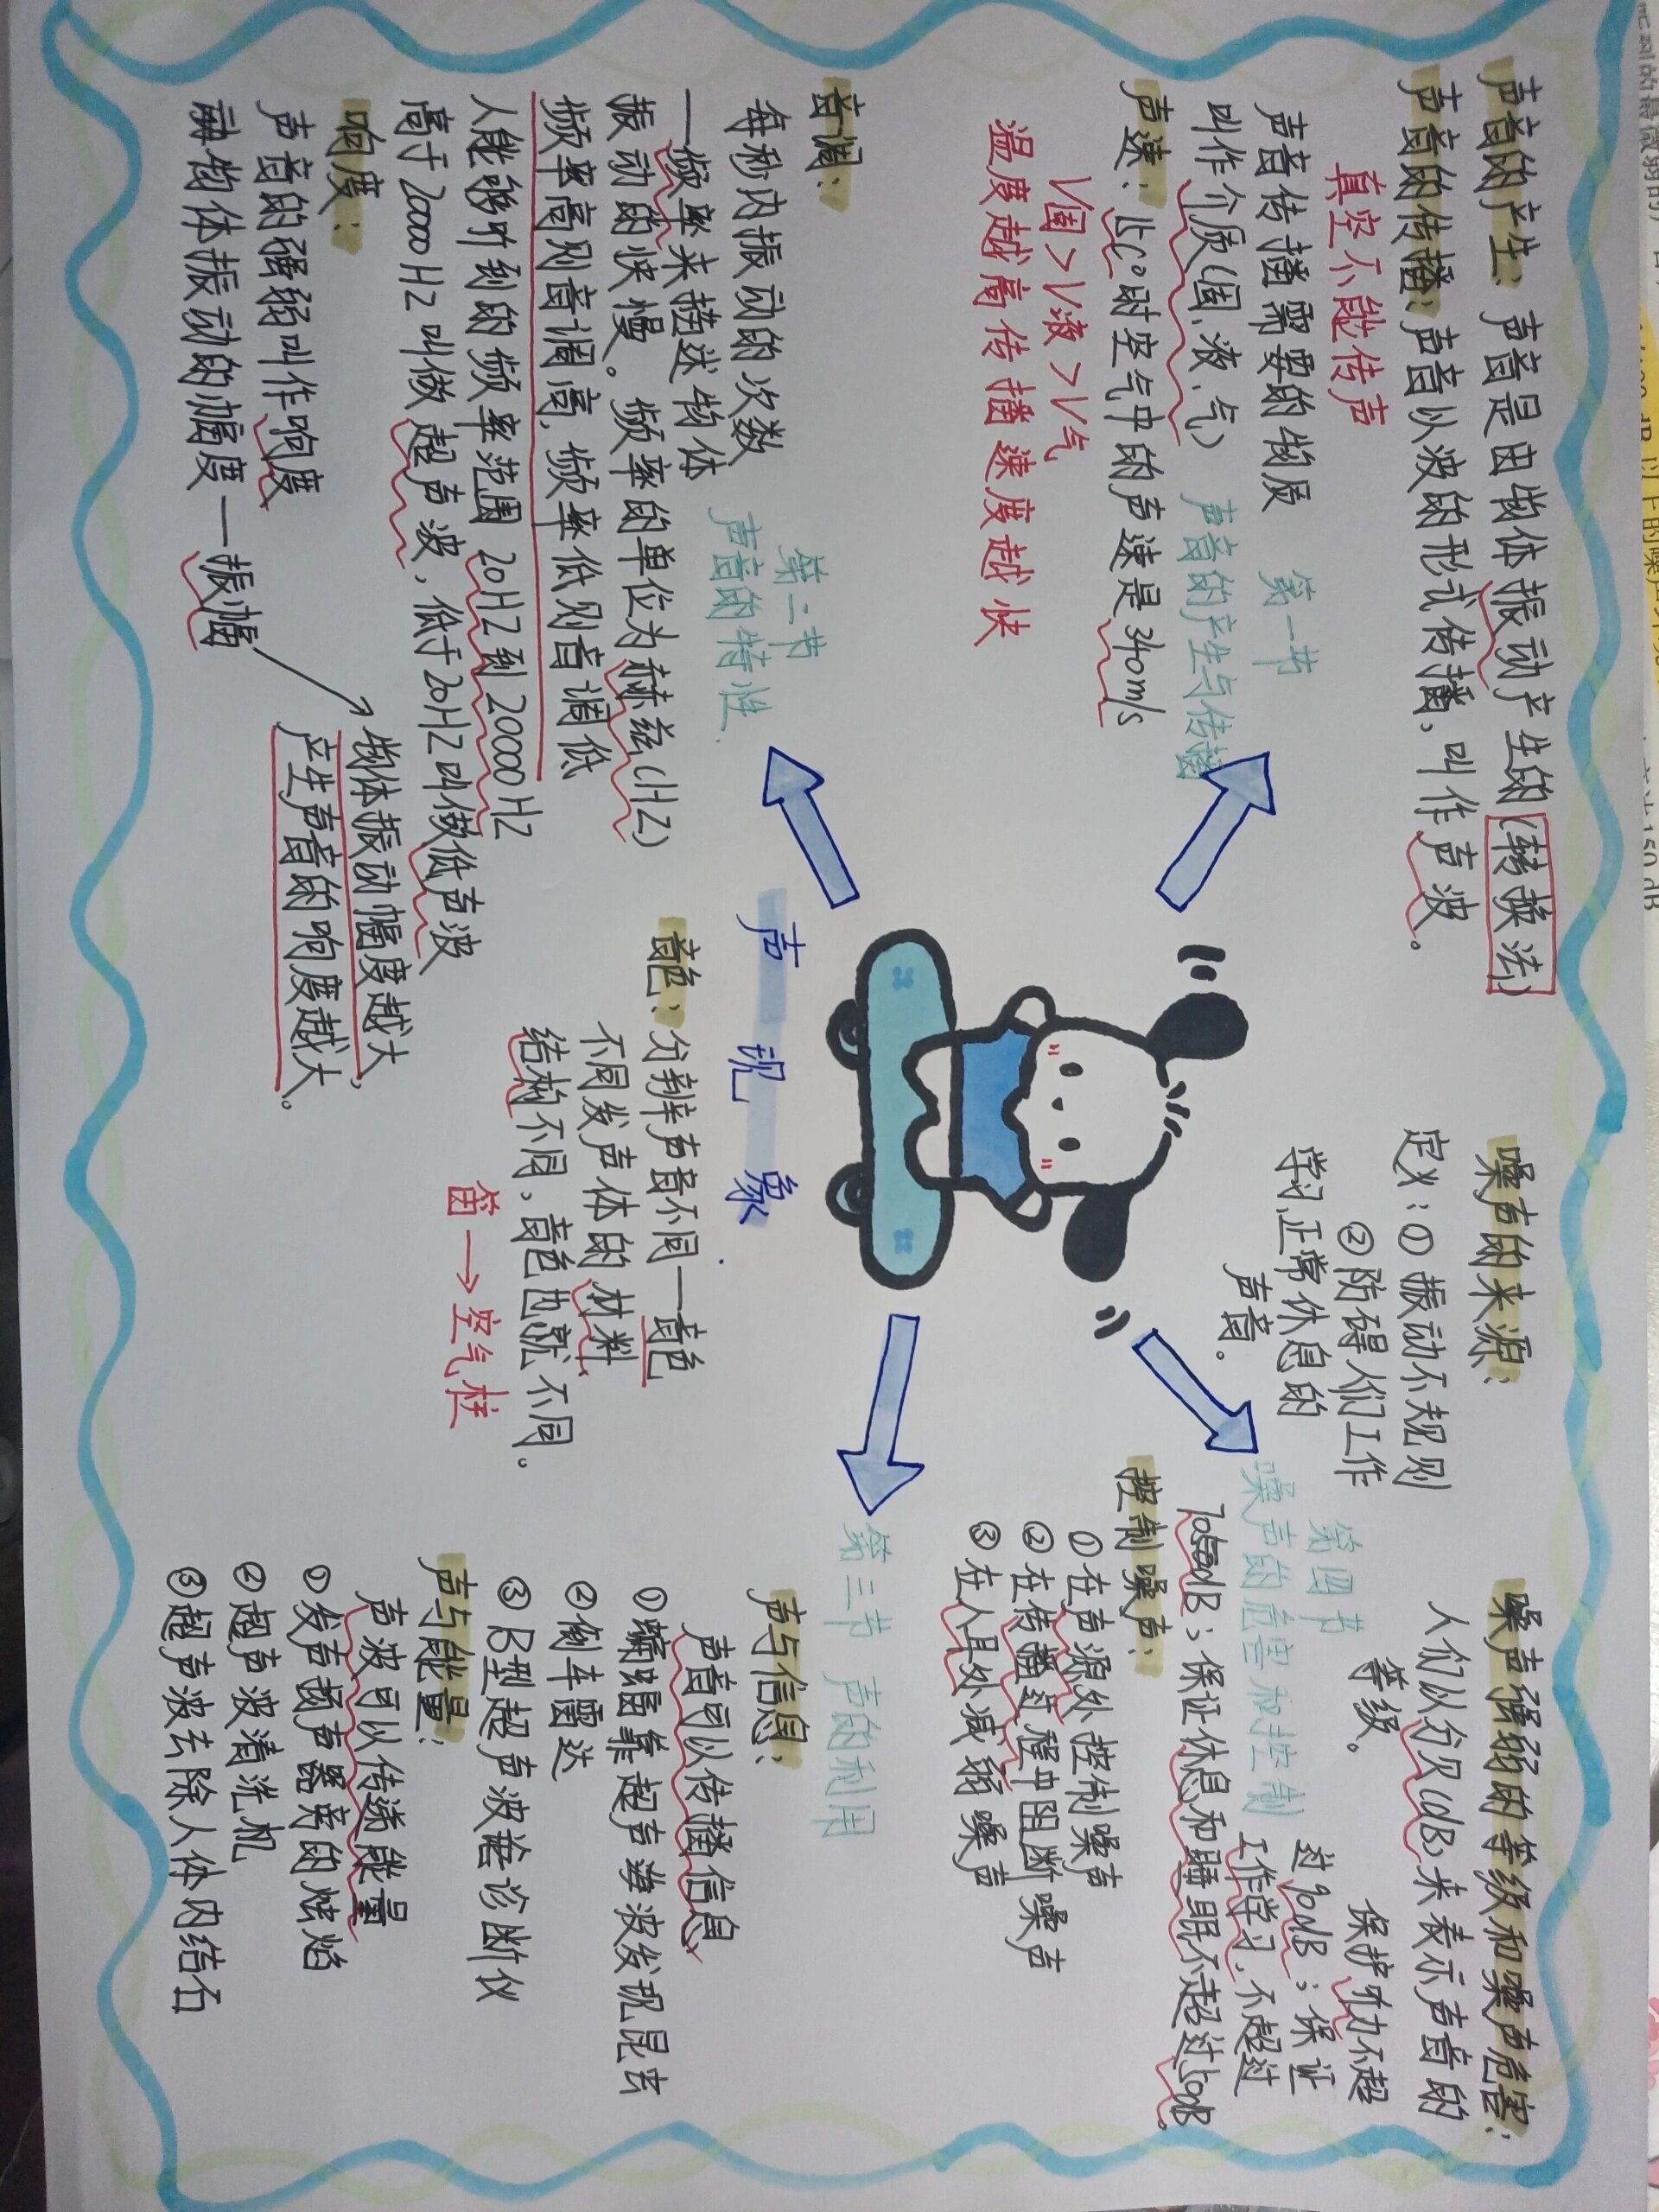 声音的产生：声音是由物体振动产生的(转换法)
声音的传播：声音以波的形式传播，叫作声波。
真空不能传声
声音传播需要的物质
叫作介质(固、液、气)
声速：15C°时空气中的声速是340m/s
V固>V液>V气
温度越高传播速度越快
第一节
声音的产生与传播
音调：
每秒内振动的次数
—频率来描述物体
振动的快慢。频率的单位为赫兹(HZ)
频率高则音调高，频率低则音调低
人能够听到的频率范围20HZ到20000HZ
高于20000HZ叫做超声波，低于20HZ叫做低声波
第二节
声音的特性
响度：
声音的强弱叫作响度
物体振动的幅度—振幅
物体振动幅度越大，
产生声音的响度越大。
声现象
音色：分辨声音不同—音色
不同发声体的材料、
结构不同，音色也就不同。
笛→空气柱
噪声的来源：
定义：①振动不规则
②防碍人们工作
学习正常休息的
声音。
噪声强弱的等级和噪声危害：
人们以分贝(dB)来表示声音的
等级。
保护听力不超
过90dB；保证
工作学习，不超过
70dB；保证休息和睡眠不超过50dB。
第四节
噪声的危害和控制
控制噪声：
①在声源处控制噪声
②在传播过程中阻断噪声
③在人耳处减弱噪声
第三节 声的利用
声与信息：
声音可以传播信息
①蝙蝠靠超声波发现昆虫
②倒车雷达
③B型超声波诊断仪
声与能量：
声波可以传递能量
①发声扬声器旁的烛焰
②超声波清洗机
③超声波去除人体内结石